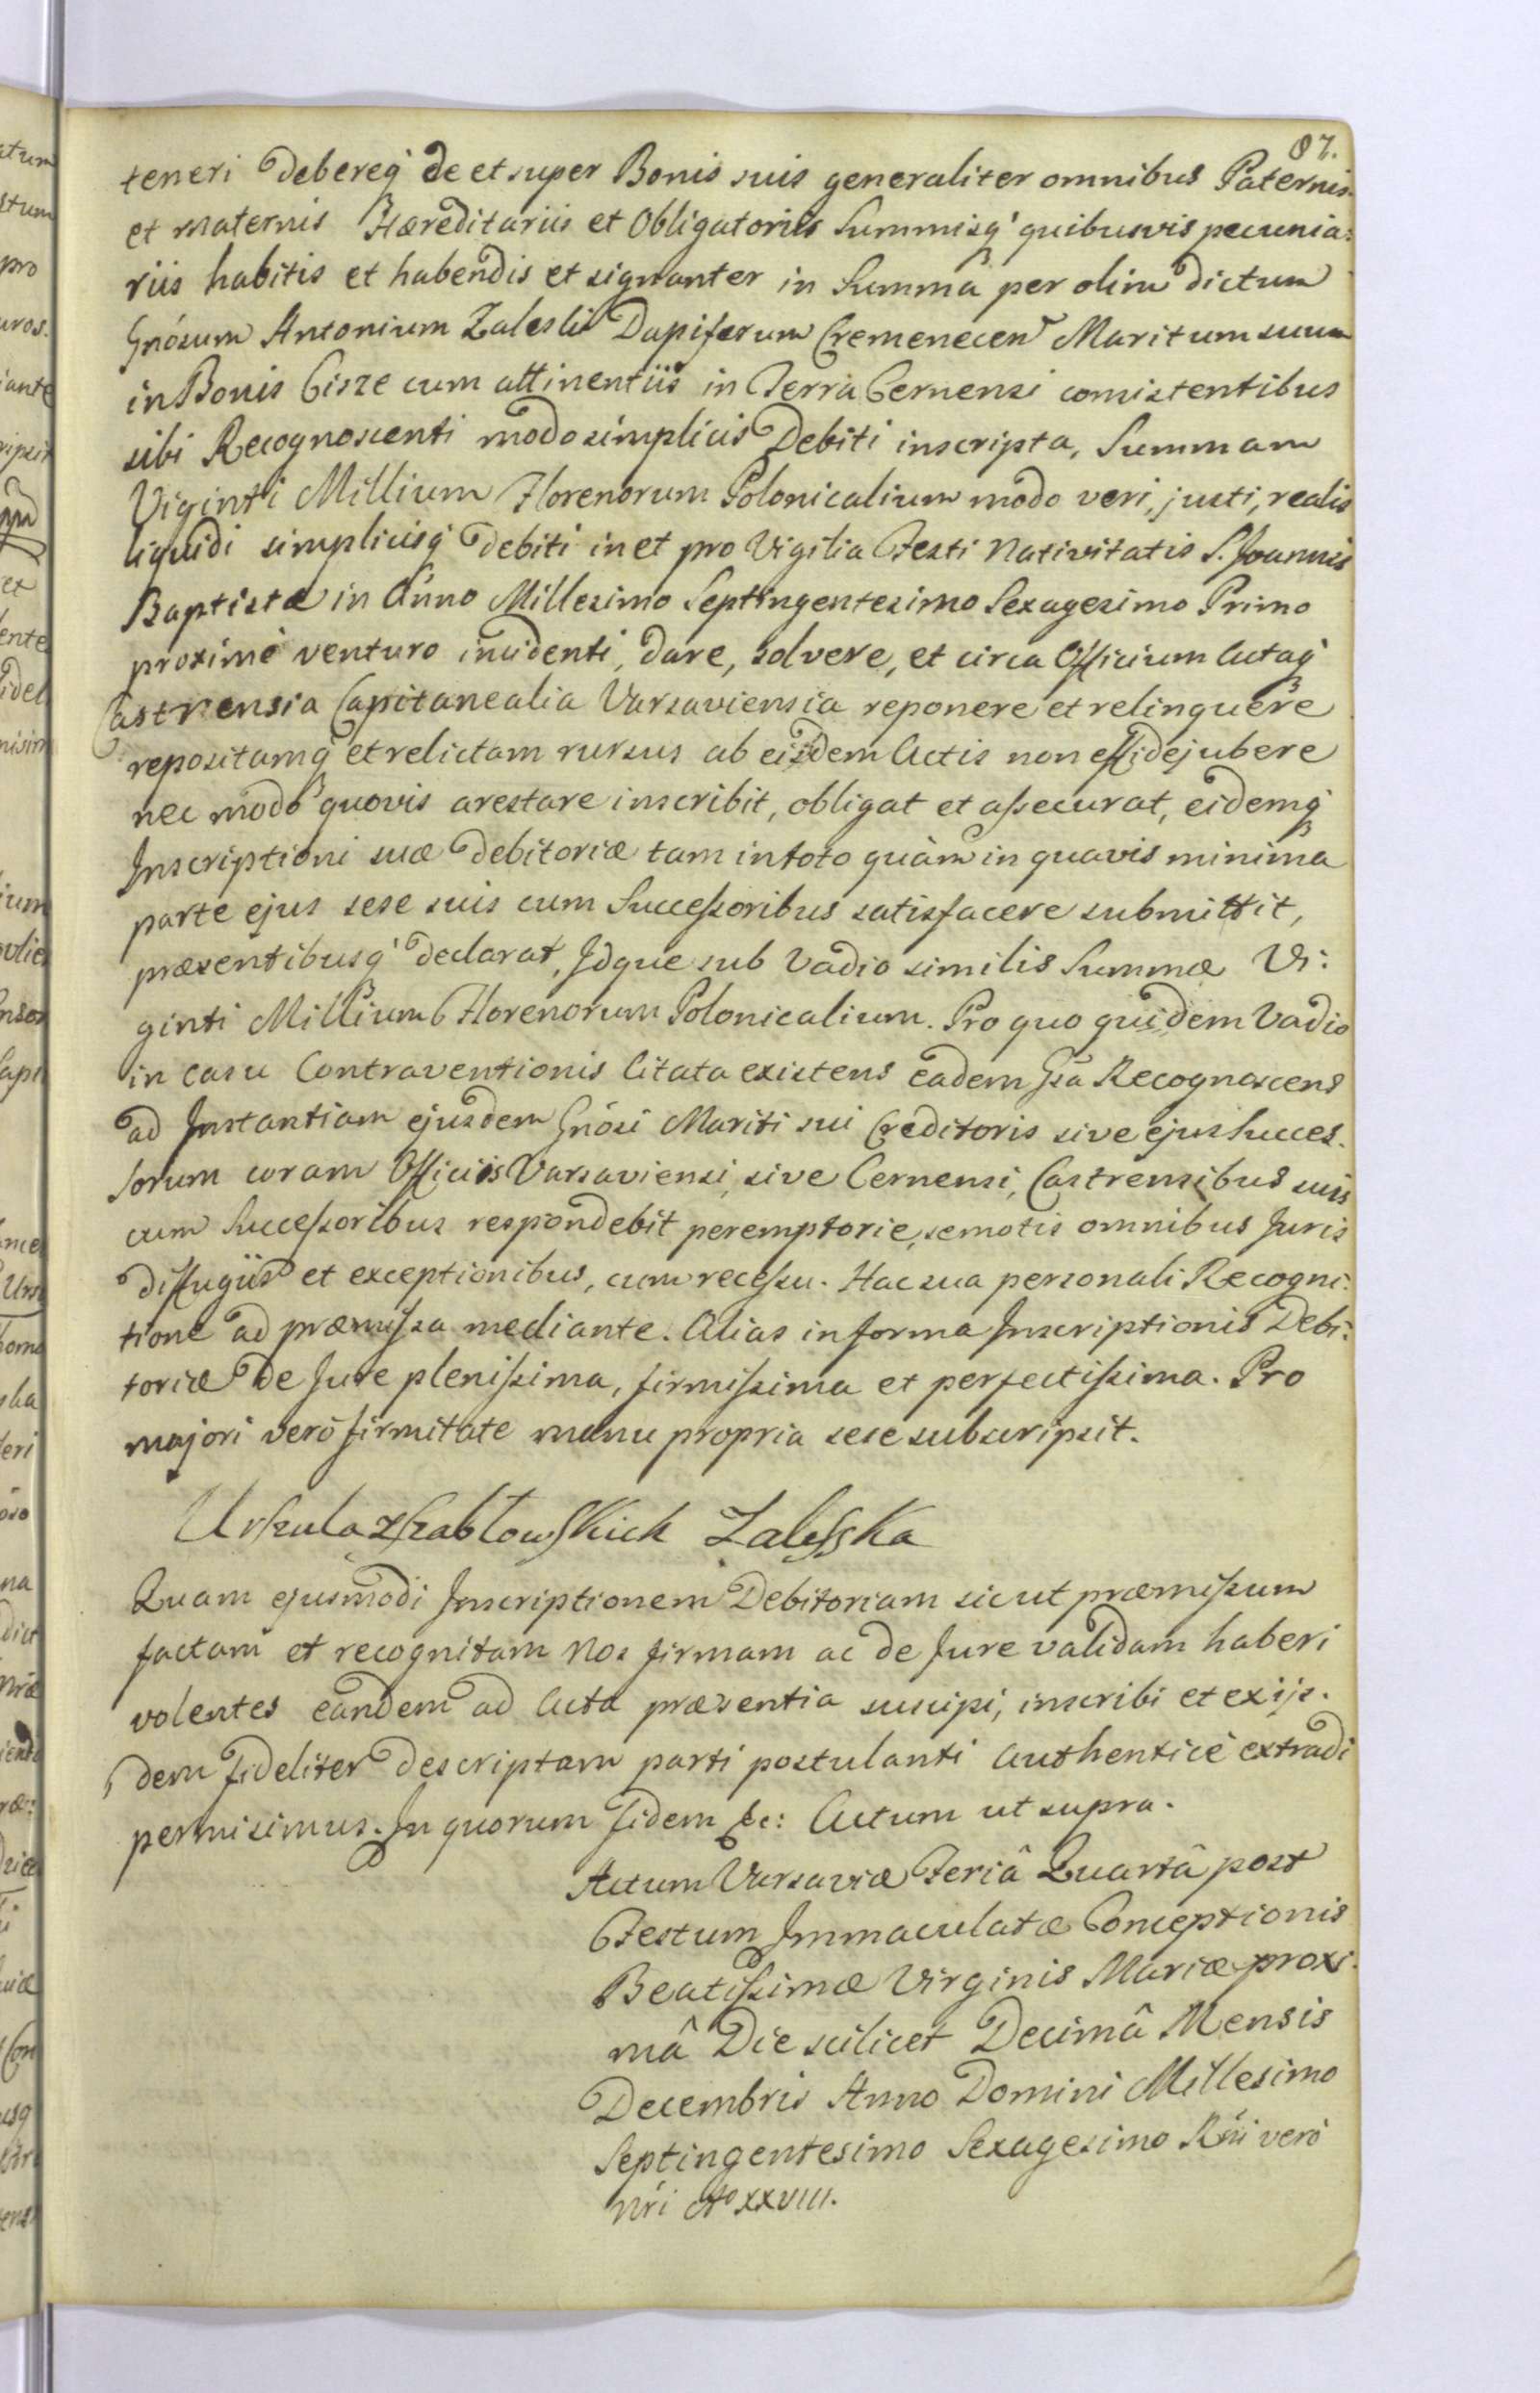 87.
teneri debereq́ de et super Bonis suis generaliter omnibus Paternis
et maternis Hæreditariis et Obligatoriis Summisq́ quibusvis pecunia:
riis habitis et habendis et signanter in Summa per olim dictum
Gnósum Antonium Zaleski Dapiferum Cremenecen Maritum suum
in Bonis cum attinentiis in Terra Cernensi consistentibus
sibi Recognoscenti modo simplicis Debiti inscripta, Summam
Viginti Millium Florenorum Polonicalium modo veri, justi, realis
liquidi simplicisq́ debiti in et pro Vigilia Festi Nativitatis S. Joannis
Baptistæ in Anno Millesimo Septingentesimo Sexagesimo Primo
proximè venturo incidenti, dare, solvere, et circa Officium Actaq́
Castrensia Capitanealia Varsaviensia reponere et relinquere
repositamq́ et relictam rursus ab eisdem Actis non effidejubere
nec modo quovis arestare inscribit, obligat et assecurat, eidemq́
Inscriptioni suæ debitoriæ tam in toto quàm in quavis minima
parte ejus sese suis cum Successoribus satisfacere submittit,
præsentibusq́ declarat, Idque sub Vadio similis Summæ Vi:
ginti Millium Florenorum Polonicalium. Pro quo quidem Vadio
in casu Contraventionis Citata existens eadem Gsa Recognoscens
ad Instantiam ejusdem Gnósi Mariti sui Creditoris sive ejus Succes-
sorum coram Officiis Varsaviensi, sive Cernensi, Castrensibus suis
cum Successoribus respondebit peremptorie, semotis omnibus Juris
diffugiis et exceptionibus, cum recessu. Hac sua personali Recogni:
tione ad præmissa mediante. Alias in forma Inscriptionis Debi:
toriæ de Jure plenissima, firmissima et perfectissima. Pro
majori verò firmitate manu propria sese subscripsit.
Urszula z Szabłowskich Zalesska
Quam ejusmodi Inscriptionem Debitoriam sicut præmissum
factam et recognitam Nos firmam ac de Jure validam haberi
volentes eandem ad Acta præsentia suscipi, inscribi et ex ijs-
dem fideliter descriptam parti postulanti Authenticè extradi
permisimus. In quorum fidem &c: Actum ut supra.
Actum Varsaviæ Feriâ Quartâ post
Festum Immaculatæ Conceptionis
Beatissimæ Virginis Mariæ proxi:
mâ Die scilicet Decimâ Mensis
Decembris Anno Domini Millesimo
Septingentesimo Sexagesimo Rńi verò
Nri Ao XXVIII.